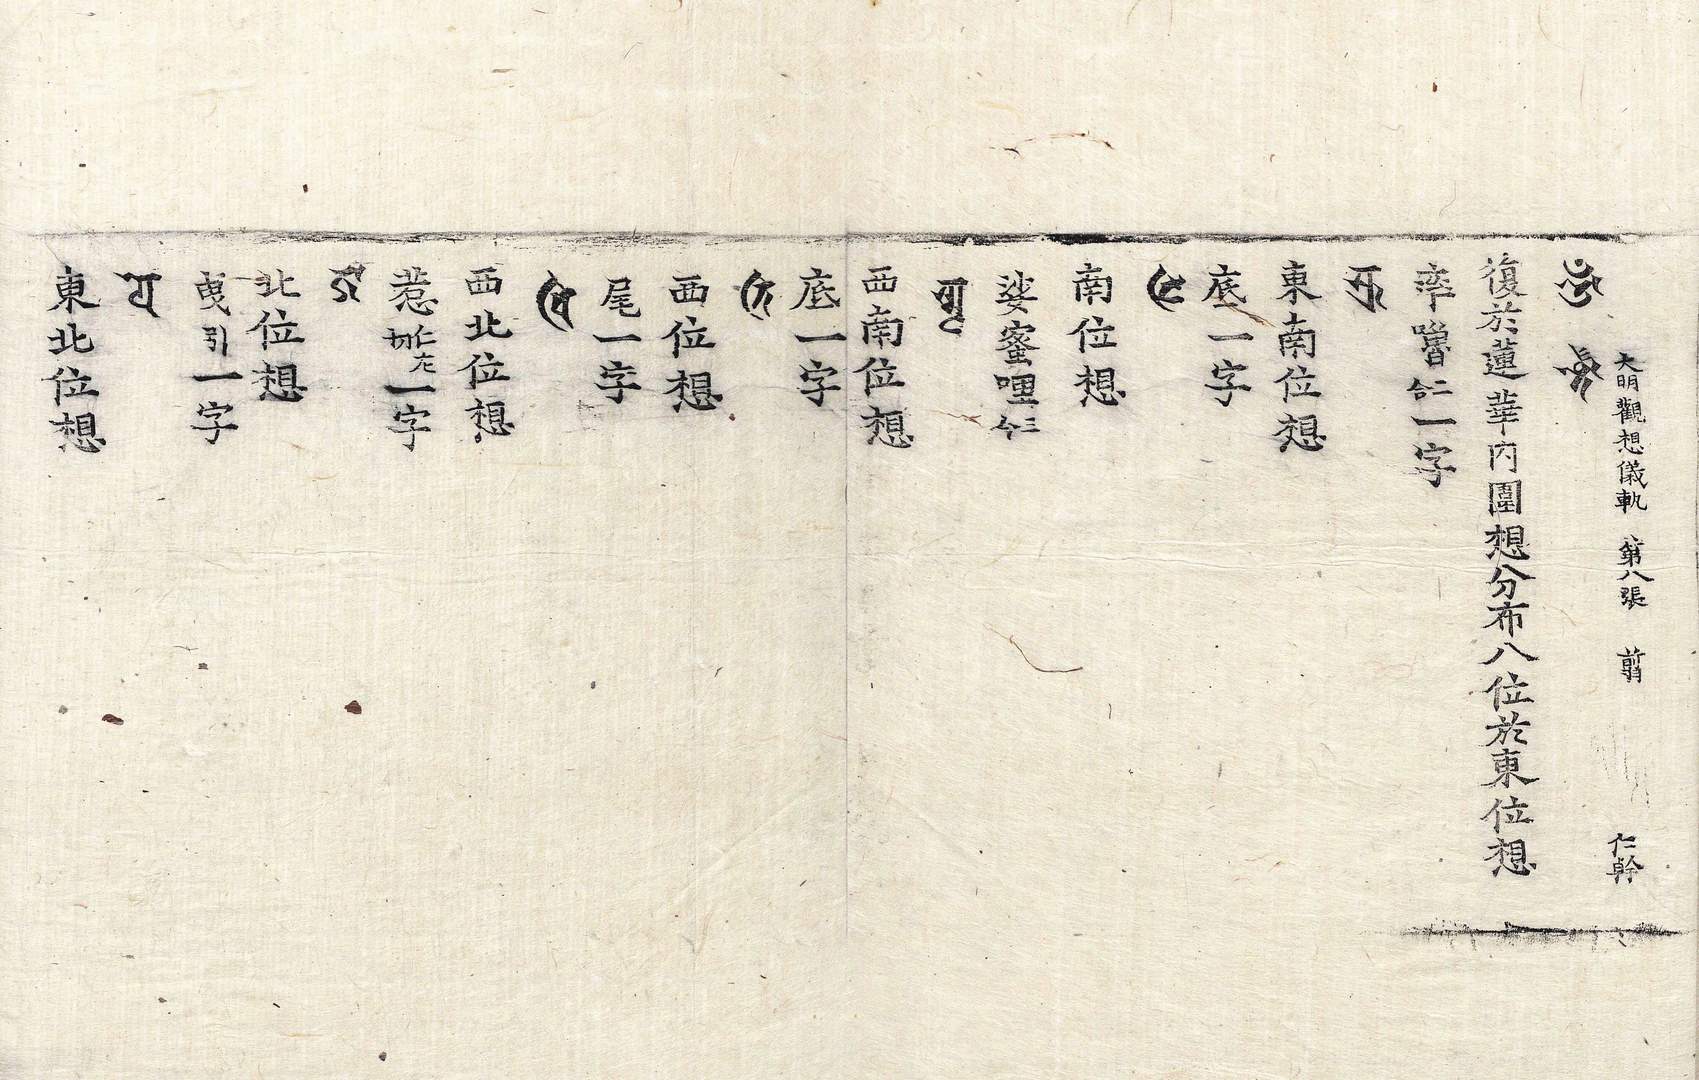 大明觀想儀軌 第八張 翦 仁幹
復於蓮華內圍想分布八位於東位想
率嚕二合一字
東南位想
底一字
南位想
娑蜜哩三合
西南位想
底一字
西位想
尾一字
西北位想
惹仁左切一字
北位想
曳引一字
東北位想